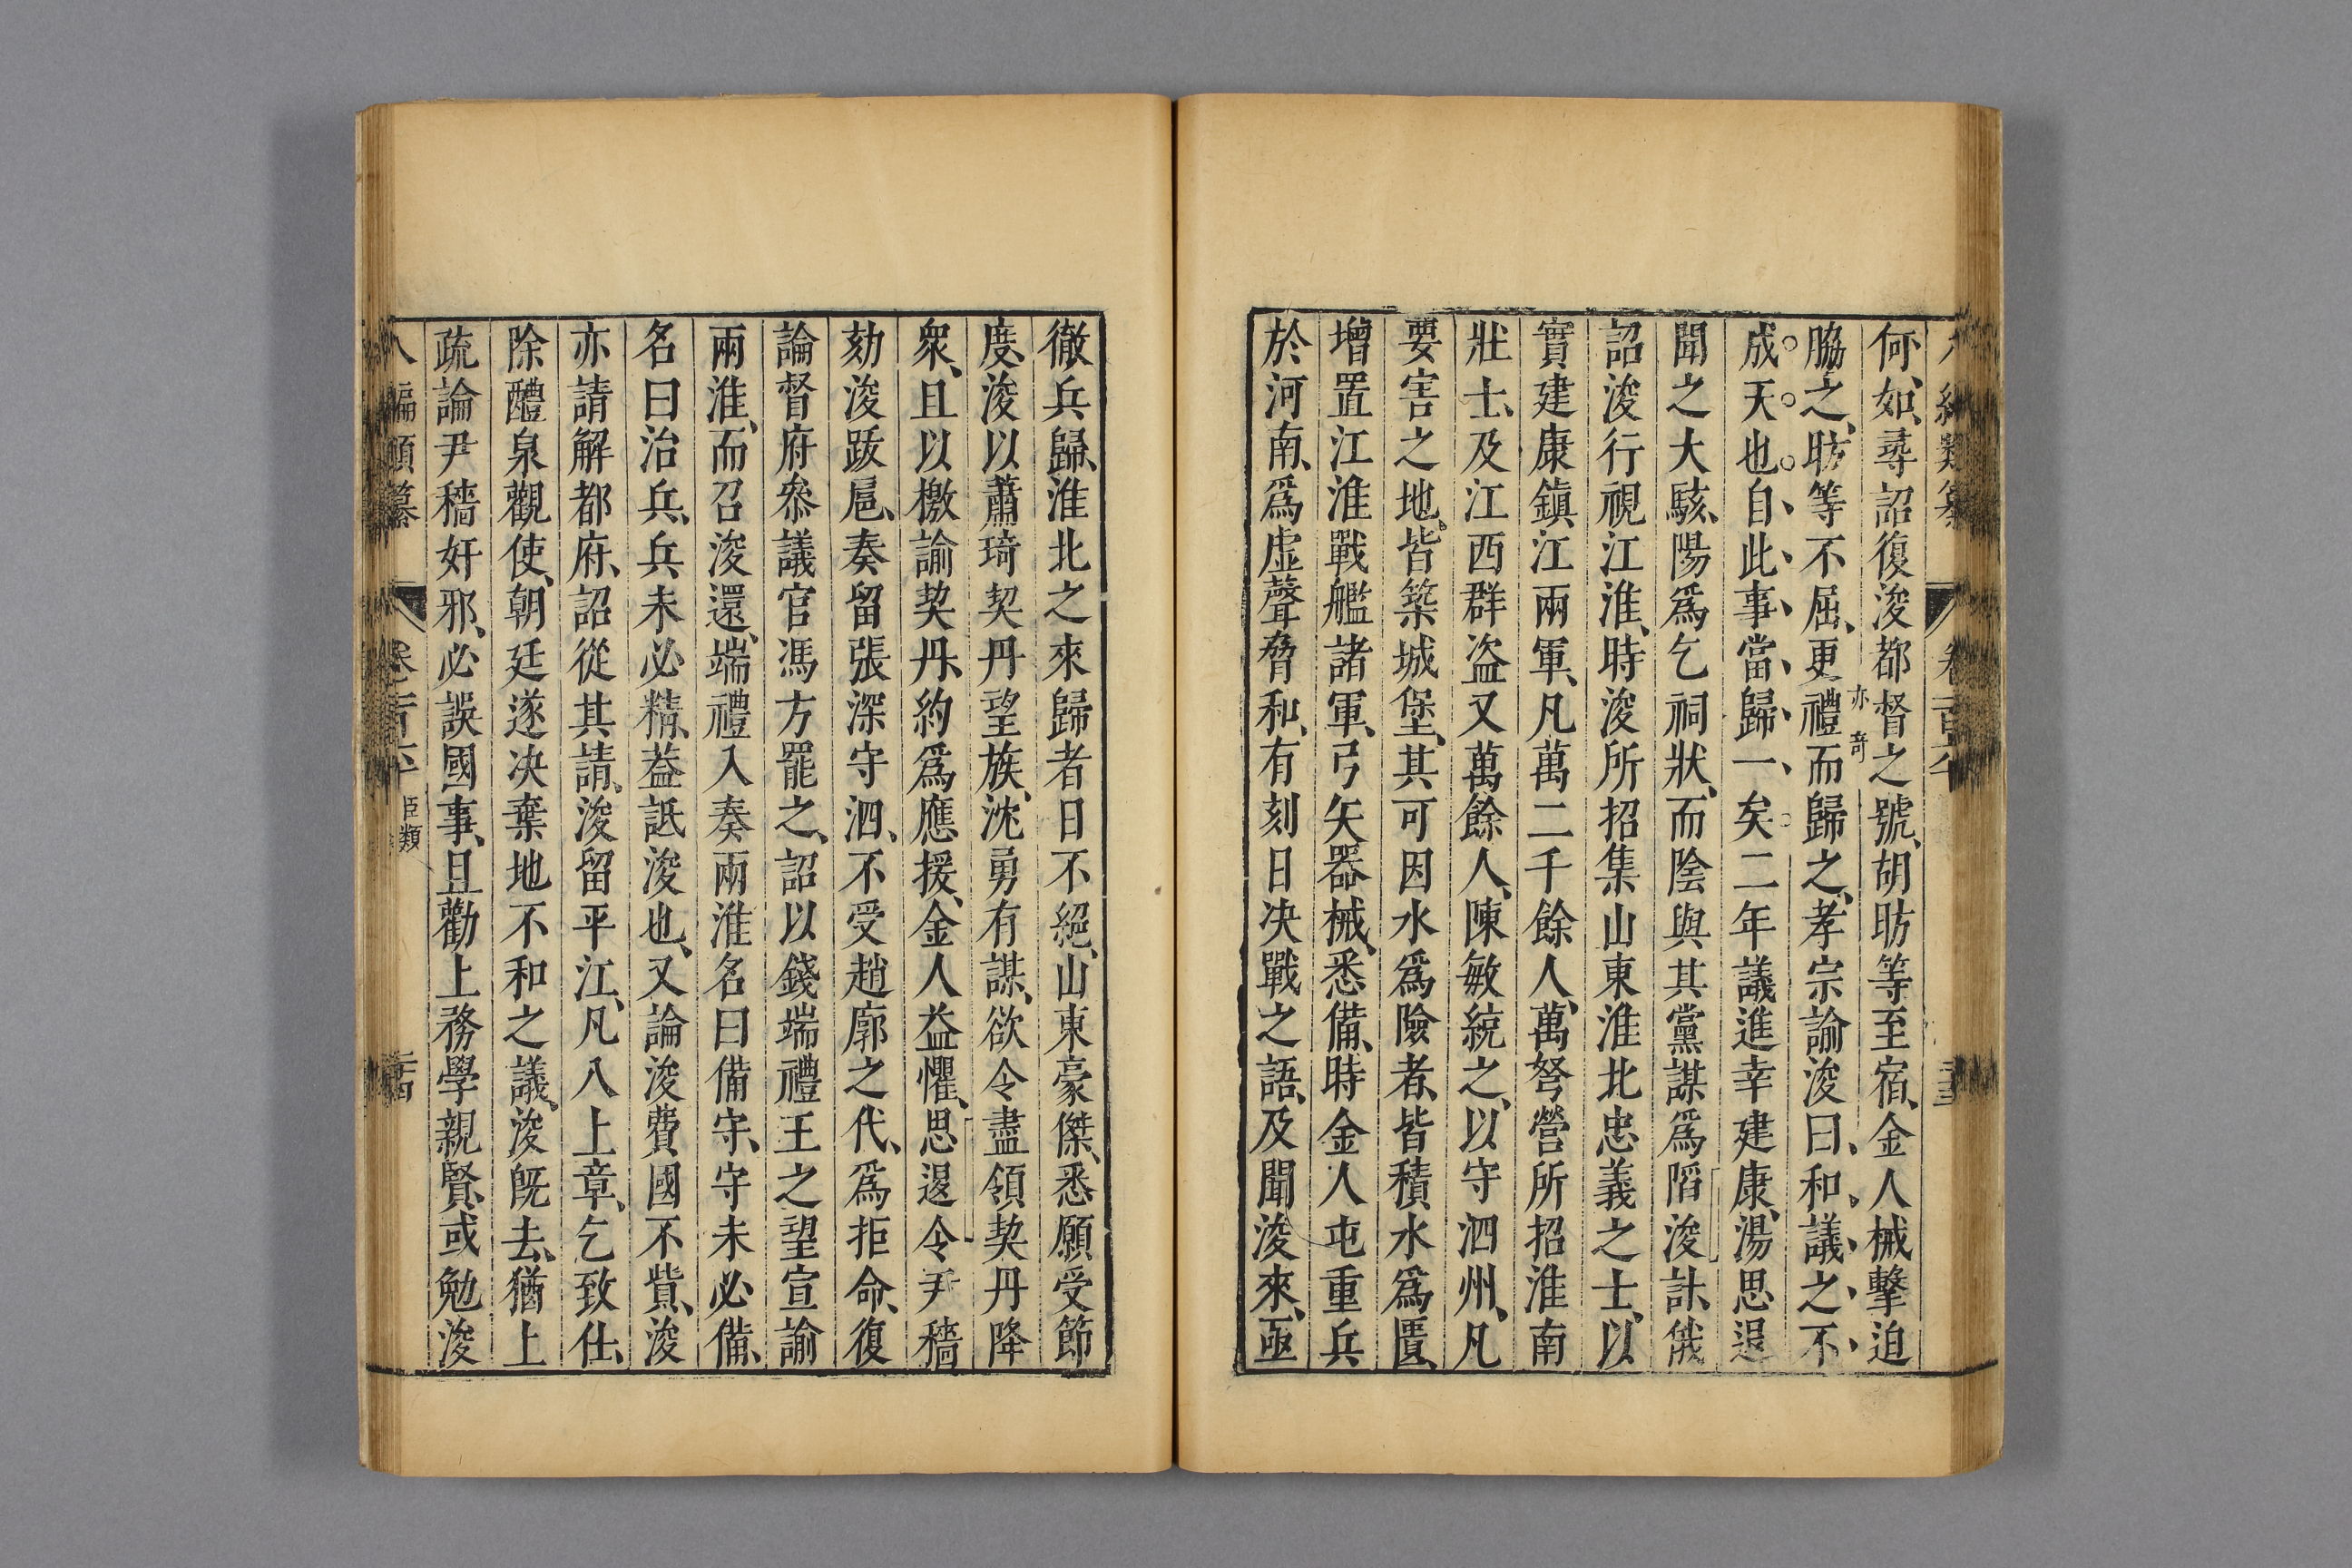 何如、尋詔復浚都督之號、胡昉等至宿、金人械擊迫
脇之、昉等不屈、更禮而歸之、孝宗諭浚曰、和議之不
亦奇
成天也自此事當歸一矣二年議進幸建康、湯思退
聞之大駭、陽爲乞祠狀、而陰與其黨謀爲陷浚計、俄
詔浚行視江淮、時浚所招集山東淮北忠義之士、以
實建康鎭江兩軍、凡萬二千餘人、萬弩營所招淮南
壯士、及江西群盜又萬餘人、陳敏統之、以守泗州、凡
要害之地、皆築城堡、其可因水爲險者、皆積水爲匱、
增置江淮戰艦諸軍、弓矢器械、悉備、時金人屯重兵
於河南、爲虛聲脅和、有刻日決戰之語、及聞浚來、亟
徹兵歸、淮北之來歸者日不絕、山東豪傑、悉願受節
度、浚以蕭琦契丹望族、沈勇有謀、欲令盡領契丹降
衆、且以檄諭契丹、約爲應援、金人益懼、思退令尹穡
劾浚跋扈、奏留張深守泗、不受趙廓之代、爲拒命、復
論督府叅議官馮方罷之、詔以錢端禮王之望宣諭
兩淮、而召浚還、端禮入奏兩淮名曰備守、守未必備、
名曰治兵、兵未必精、蓋詆浚也、又論浚費國不貲、浚
亦請解都府、詔從其請、浚留平江、凡八上章、乞致仕、
除醴泉觀使、朝廷遂决棄地不和之議、浚既去、猶上
疏論尹穡奸邪、必誤國事、且勸上務學親賢、或勉浚
八編類纂 卷百六 臣類